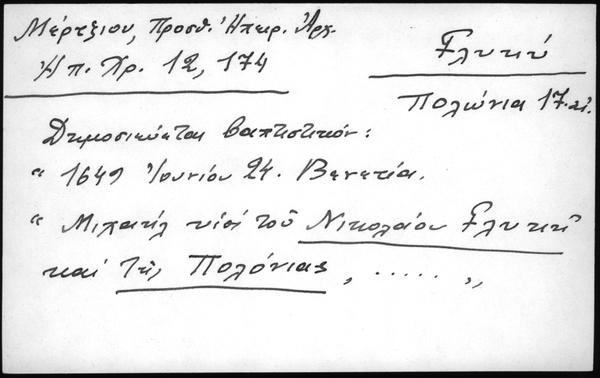 Μέρτζιου, Προσθ. Ἠπειρ. Ἀρχ.
Ἠπ. Χρ. 12, 174
Γλυκύ
Πολώνια 17. αἰ.
Δημοσιεύεται βαπτιστικόν:
" 1649 Ἰουνίου 24. Βενετία.
" Μιχαήλ υἱός τοῦ Νικολάου Γλυκῆ
καί τῆς Πολόνιας, ..... "